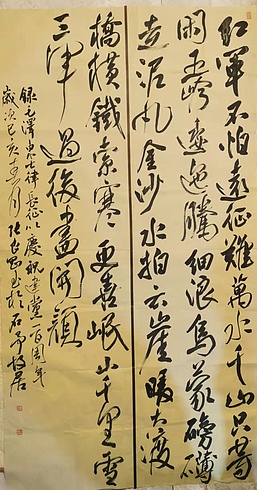 红軍不怕遠征難萬水千山只等
闲五岭逶迤騰细浪烏蒙磅礴
走泥丸金沙水拍云崖暖大渡
橋横鐵索寒更喜岷山千里雪
三軍過後盡開顏
錄毛澤东七律長征以慶祝建黨一百周年
歲次己亥春月